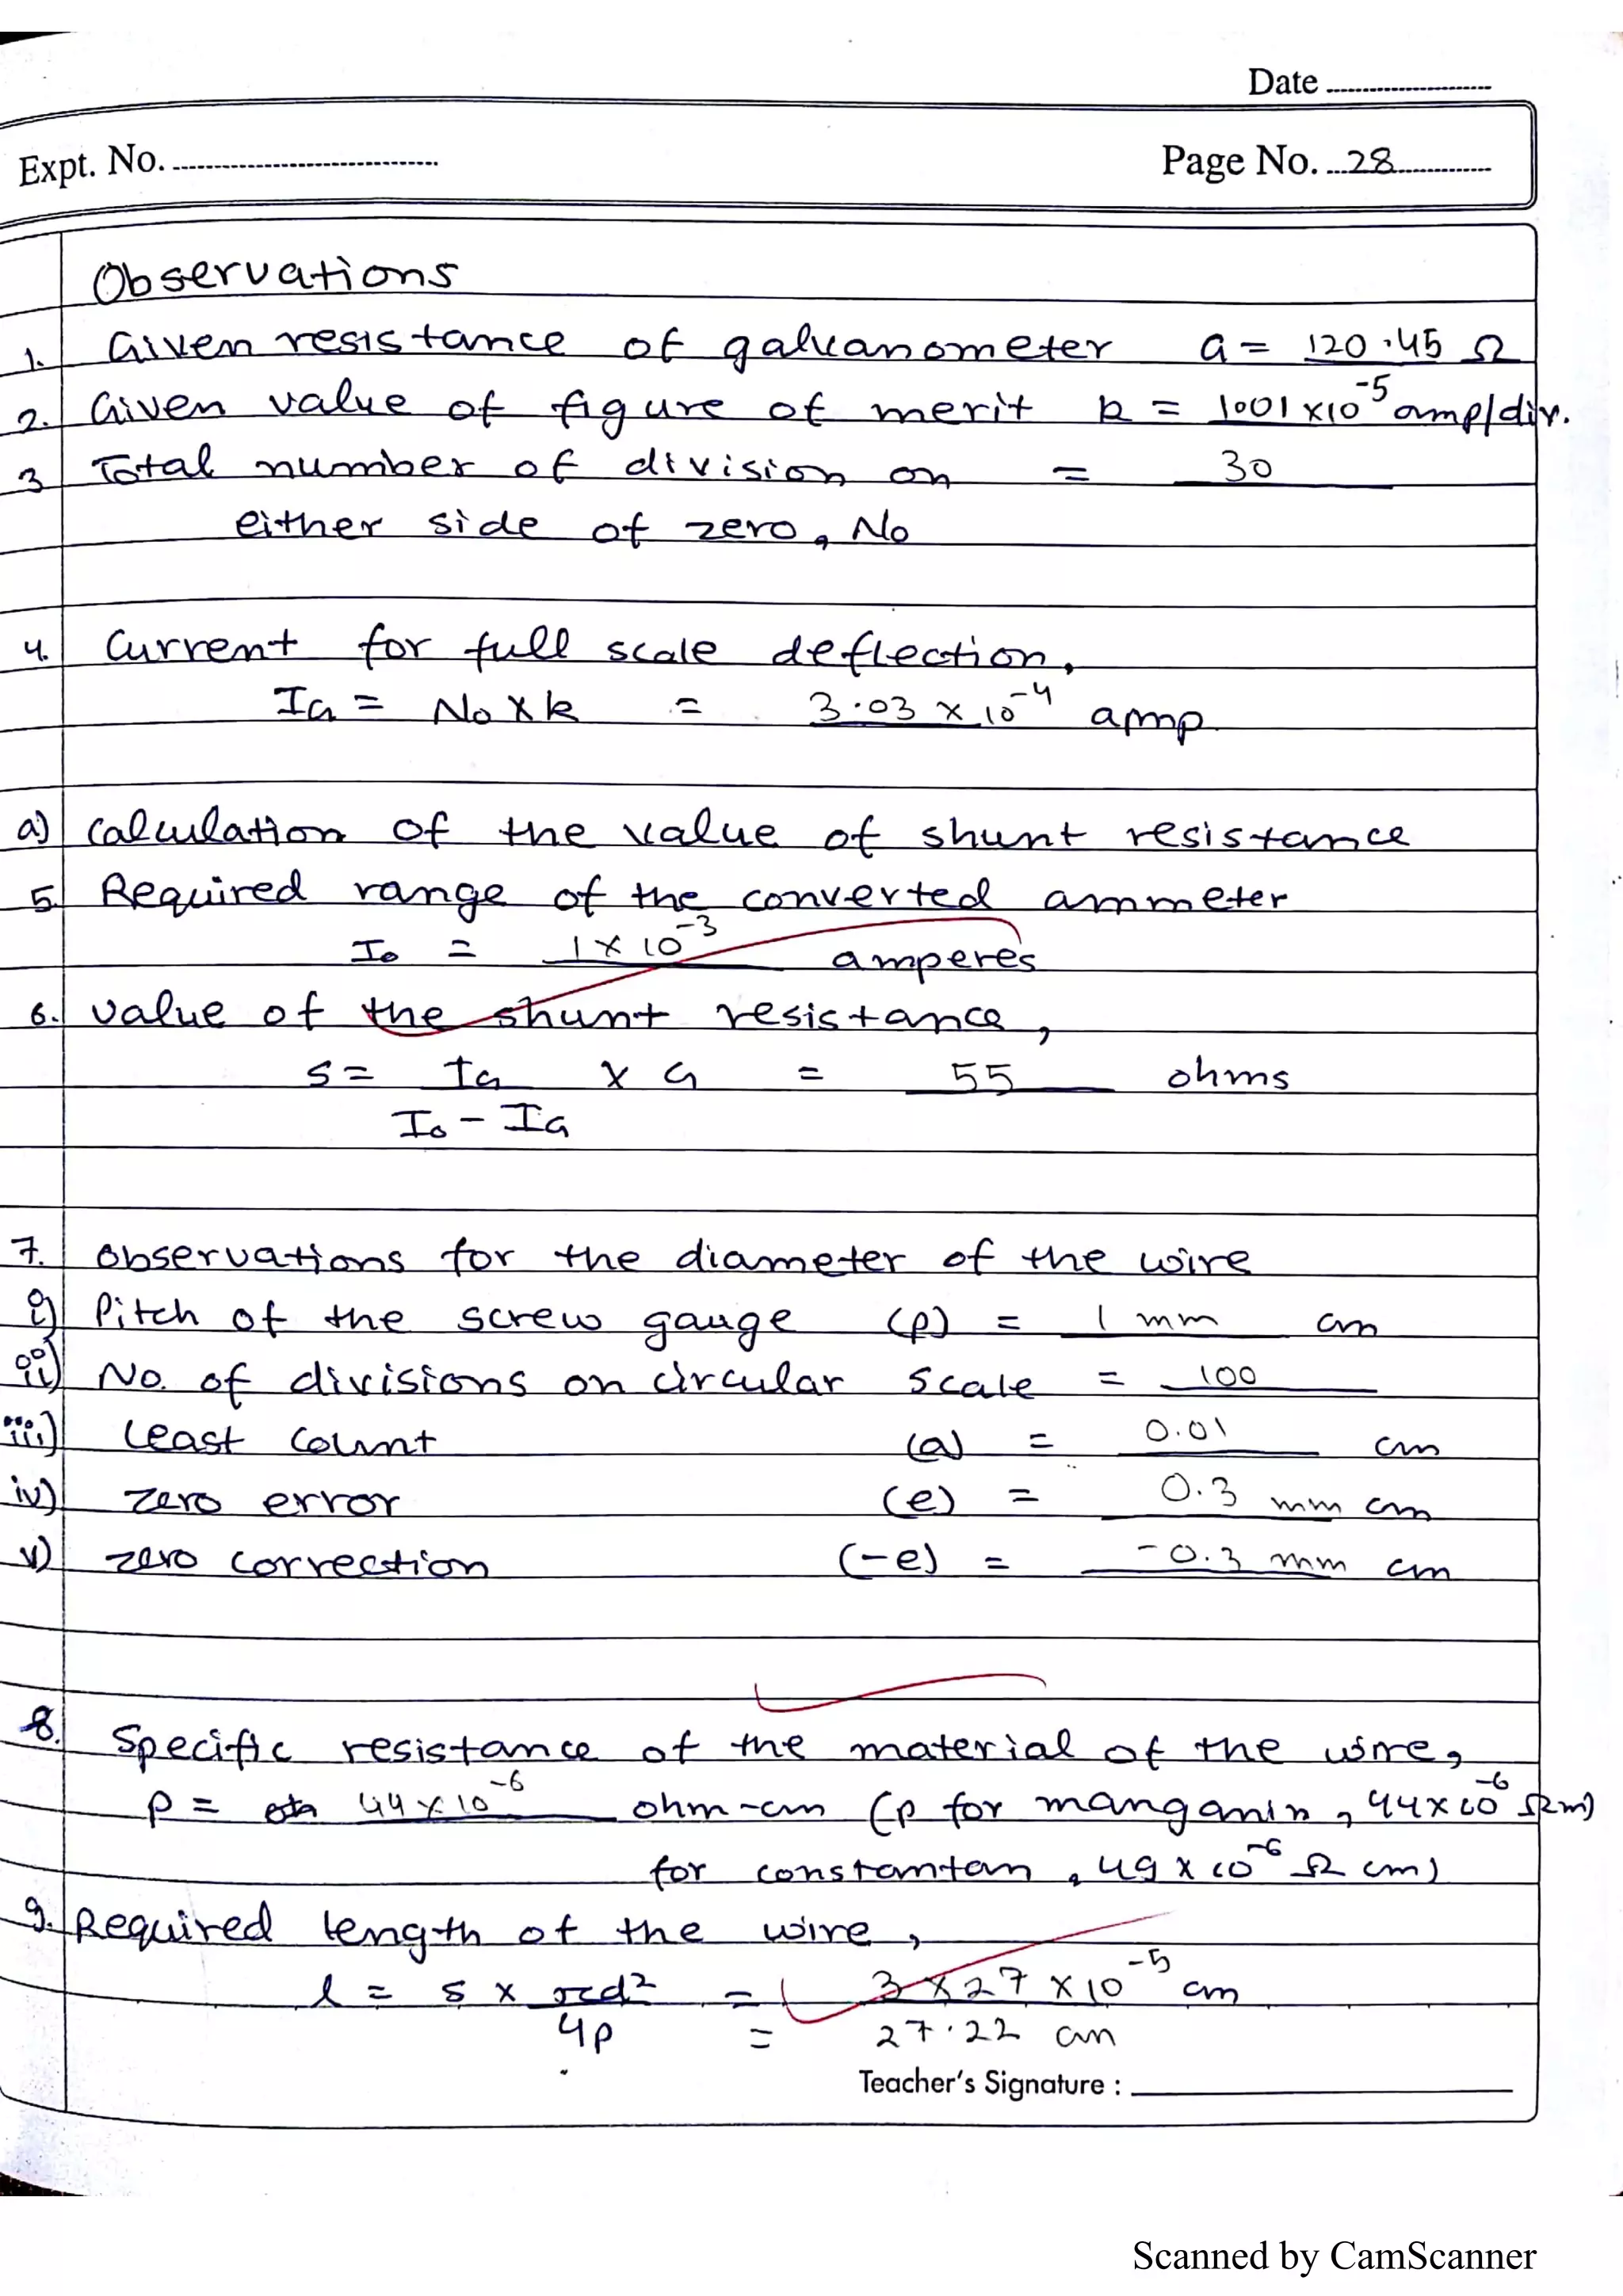 Date
Expt. No.
Page No. 28
Observations
1. Given resistance of galvanometer G = 120.45 Ω
2. Given value of figure of merit k = 1.01 x10⁻⁵ amp/div.
3 Total number of division on = 30
either side of zero, No
4. Current for full scale deflection,
IG = No X k = 3.03 x 10⁻⁴ amp
a) Calculation of the value of shunt resistance
5. Required range of the converted ammeter
Io = 1 X 10⁻³ amperes
6. value of the shunt resistance,
S = IG X G = 55 ohms
Io - IG
7. Observations for the diameter of the wire
i) Pitch of the screw gauge (p) = 1 mm cm
ii) No. of divisions on circular scale = 100
iii) Least count (a) = 0.01 cm
iv) zero error (e) = 0.3 mm cm
v) zero correction (-e) = -0.3 mm cm
8. Specific resistance of the material of the wire,
ρ = 44x10⁻⁶ ohm-cm (ρ for manganin, 44x10⁻⁶ Ωm)
for constantan, 49 x 10⁻⁶ Ω cm)
9. Required length of the wire,
l = S x πd² = 3 X 27 X 10⁻⁵ cm
4ρ = 27.22 cm
Teacher's Signature :
Scanned by CamScanner